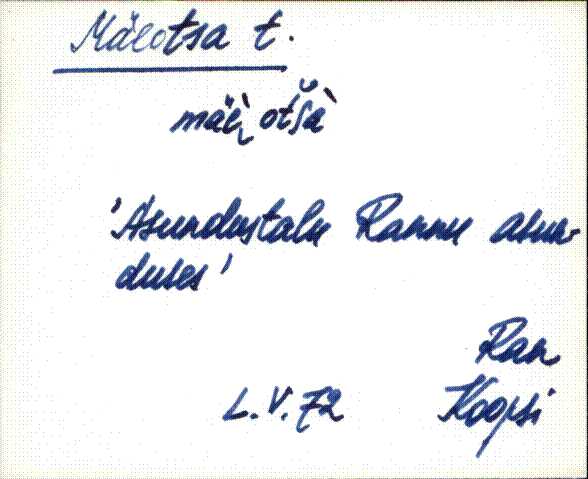 Mäeotsa t.
mäè̮ otšà
'Asundustalu Rannu asun-
duses'
Ran
L.V.72 Koopsi